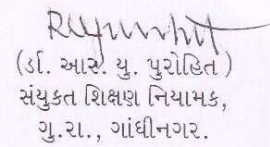 (ર્ડા. આર. યુ. પુરોહિત)
સંયુકત શિક્ષણ નિયામક,
ગુ.રા., ગાંધીનગર.